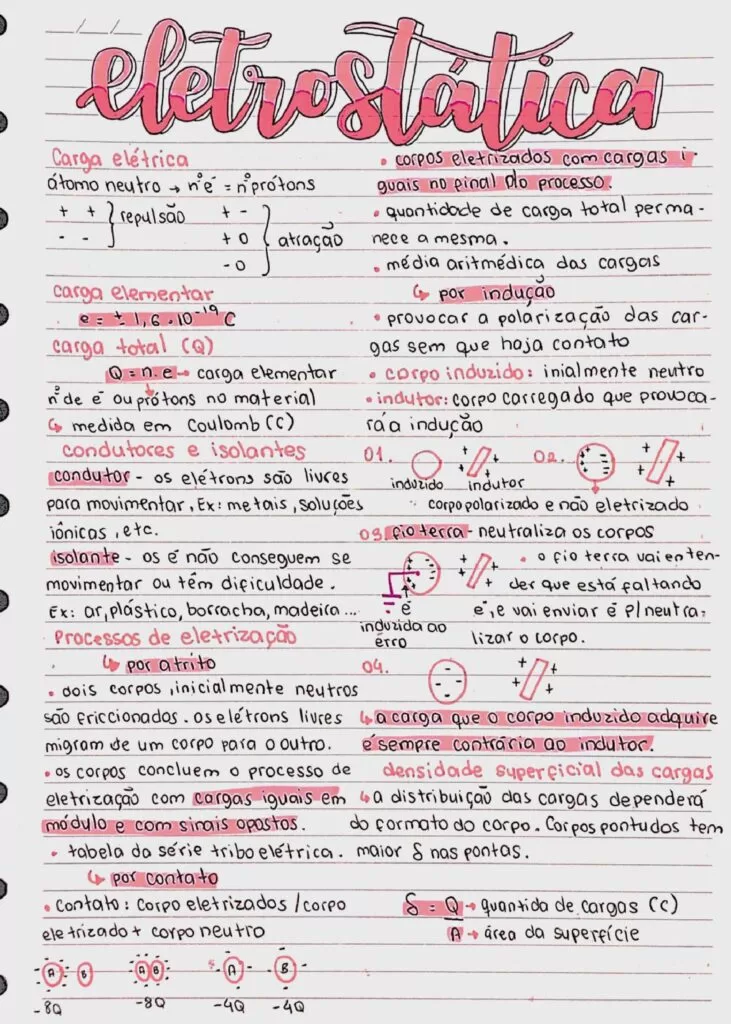 eletrostática
Carga elétrica
átomo neutro → nº é = nº prótons
+ + } repulsão + -
- - + 0 } atração
- 0
carga elementar
e = ± 1,6 · 10⁻¹⁹ C
carga total (Q)
Q = n. e → carga elementar
nº de é ou prótons no material
↳ medida em Coulomb (C)
condutores e isolantes
condutor - os elétrons são livres
para movimentar, Ex: metais, soluções
iônicas, etc.
isolante - os é não conseguem se
movimentar ou têm dificuldade.
Ex: ar, plástico, borracha, madeira...
Processos de eletrização
↳ por atrito
• dois corpos, inicialmente neutros
são friccionados. os elétrons livres
migram de um corpo para o outro.
• os corpos concluem o processo de
eletrização com cargas iguais em
módulo e com sinais opostos.
• tabela da série triboelétrica.
↳ por contato
• contato: corpo eletrizados / corpo
eletrizado + corpo neutro
A B A B A B
-8Q -8Q -4Q -4Q
• corpos eletrizados com cargas i
guais no final do processo.
• quantidade de carga total perma-
nece a mesma.
• média aritmédica das cargas
↳ por indução
• provocar a polarização das car-
gas sem que haja contato
• corpo induzido: inialmente neutro
• indutor: corpo carregado que provoca-
rá a indução
01. 02.
induzido indutor
corpo polarizado e não eletrizado
03. fio terra - neutraliza os corpos
• o fio terra vai enten-
der que está faltando
é, e vai enviar é p/ neutra-
lizar o corpo.
é
induzida ao
érro
04.
↳ a carga que o corpo induzido adquire
é sempre contrária ao indutor.
densidade superficial das cargas
↳ a distribuição das cargas dependerá
do formato do corpo. Corpos pontudos tem
maior δ nas pontas.
δ = Q → quantida de cargas (C)
A → área da superfície